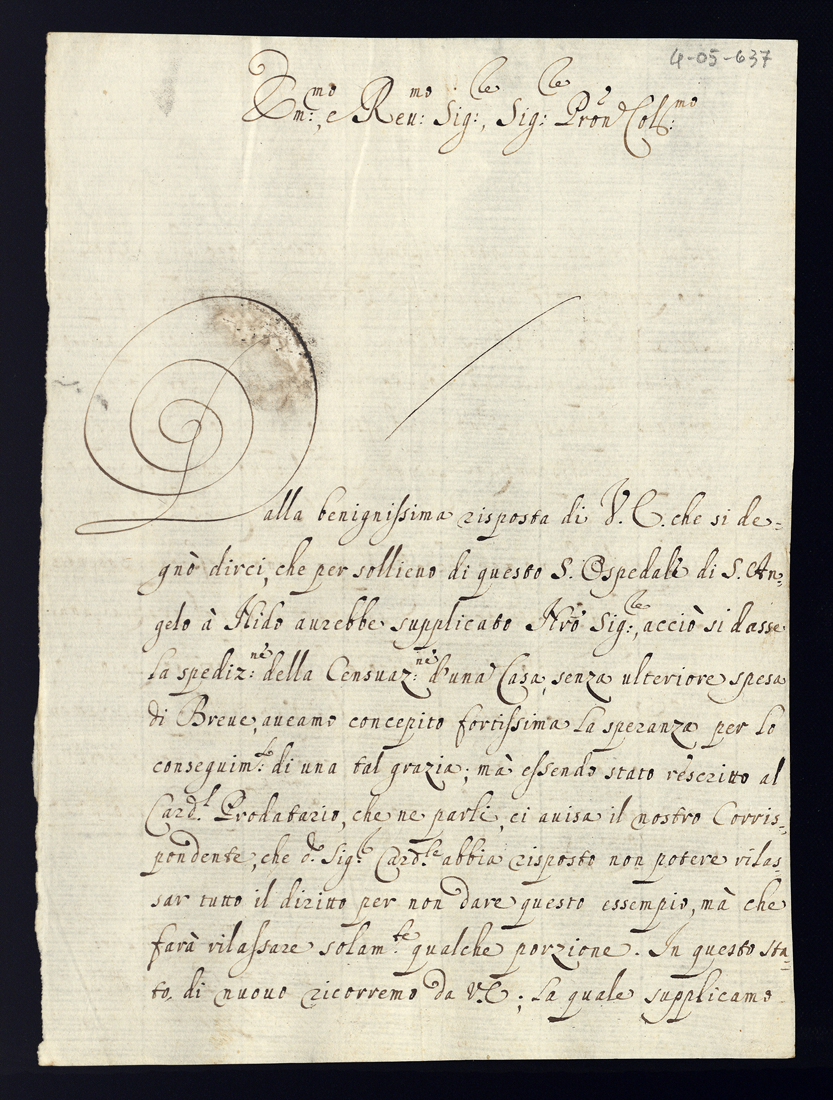 4-05-637
Em:mo, e Reu:mo Sig:le, Sig:le Pron' Coll:mo
Dalla benignissima risposta di V. E. che si de-
gnò dirci, che per sollieuo di questo S. Ospedale di S. An-
gelo à Nido aurebbe supplicato Nrõ Sig:le, acciò si dasse
la spediz:ne della Censuaz:ne d'una Casa, senza ulteriore spesa
di Breue, aueamo concepito fortissima la speranza per lo
conseguim:to di una tal grazia; mà essendo stato rescritto al
Card:l Prodatario, che ne parli, ci auisa il nostro Corris-
pondente, che d:o Sig:r Card:le abbia risposto non potere rilas-
sar tutto il diritto per non dare questo essempio, mà che
farà rilassare solam:te qualche porzione. In questo sta-
to, di nuouo ricorremo da V.E; la quale supplicamo